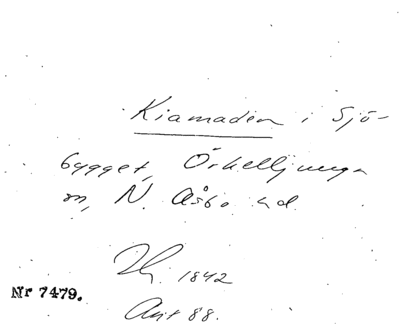 Kiamaden i Sjö-
bygget, Örkelljunga
sn, N. Åsbo hd.
1842
Akt 88.
Nr 7479.